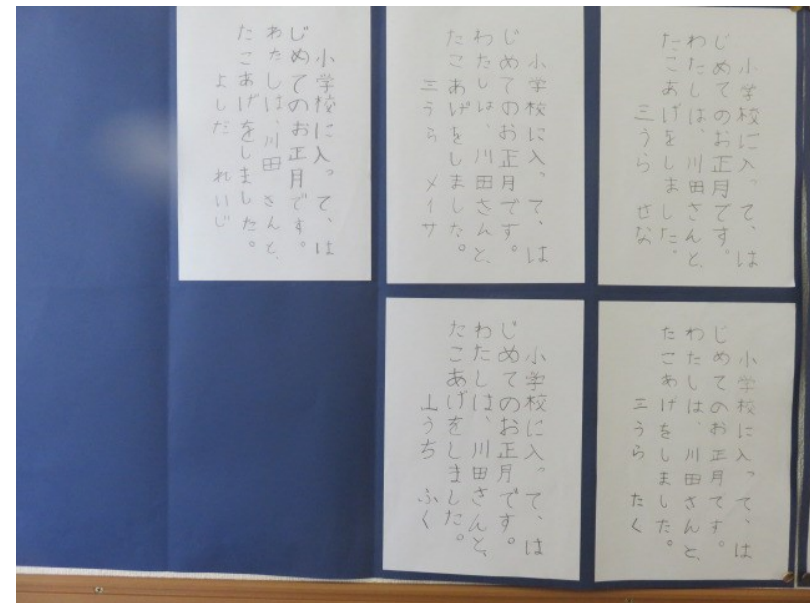 小学校に入って、は
じめてのお正月です。
わたしは、川田さんと、
たこあげをしました。
三うら せな
小学校に入って、は
じめてのお正月です。
わたしは、川田さんと、
たこあげをしました。
三うら たく
小学校に入って、は
じめてのお正月です。
わたしは、川田さんと、
たこあげをしました。
三うら メイサ
小学校に入って、は
じめてのお正月です。
わたしは、川田さんと、
たこあげをしました。
山うち ふく
小学校に入って、は
じめてのお正月です。
わたしは、川田さんと、
たこあげをしました。
よしだ れいじ